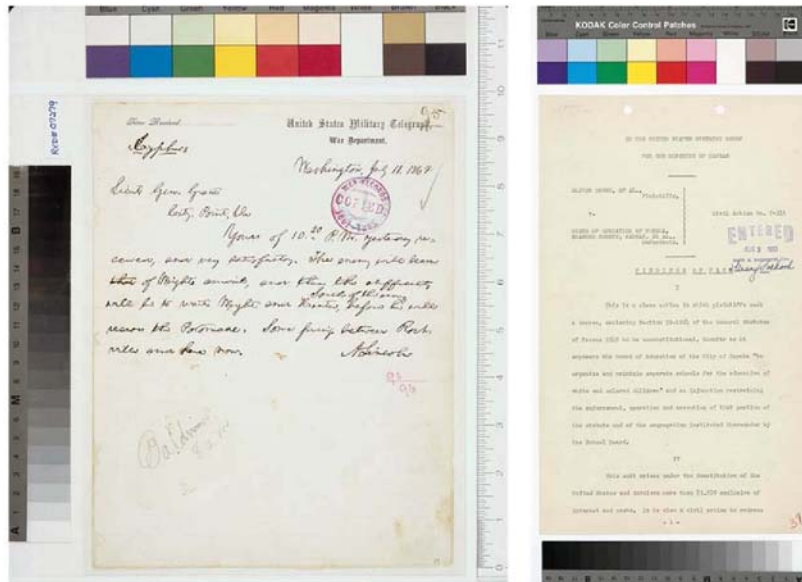 Blue Cyan Green Yellow Red Magenta White Brown Black
RCD# 07279
95
Time Received
United States Military Telegraph,
War Department.
Cypher
Washington, July 11. 1864
Lieut. Gen. Grant
City Point, Va
Yours of 10.30 P.M. yesterday re-
ceived, and very satisfactory. The enemy will learn
of Wright's arrival, and then the difficulty
will be to unite Wright and Hunter,
South of the enemy
before he will
recross the Potomac. Some firing between Rock-
ville and here now.
A. Lincoln
WAR RECORDS
COPIED
1861-1865
93
Baldwin
KODAK Color Control Patches
Kodak
IN THE UNITED STATES DISTRICT COURT
FOR THE DISTRICT OF KANSAS
OLIVER BROWN, ET AL.,
Plaintiffs,
v.
Civil Action No. T-316
BOARD OF EDUCATION OF TOPEKA,
SHAWNEE COUNTY, KANSAS, ET AL.,
Defendants.
ENTERED
FINDINGS OF FACT
I
This is a class action in which plaintiffs seek
a decree, declaring Section 72-1724 of the General Statutes
of Kansas 1949 to be unconstitutional, insofar as it
empowers the Board of Education of the City of Topeka "to
organize and maintain separate schools for the education of
white and colored children" and an injunction restraining
the enforcement, operation and execution of that portion of
the statute and of the segregation instituted thereunder by
the School Board.
II
This suit arises under the Constitution of the
United States and involves more than $3,000 exclusive of
interest and costs. It is also a civil action to redress
- 1 -
39